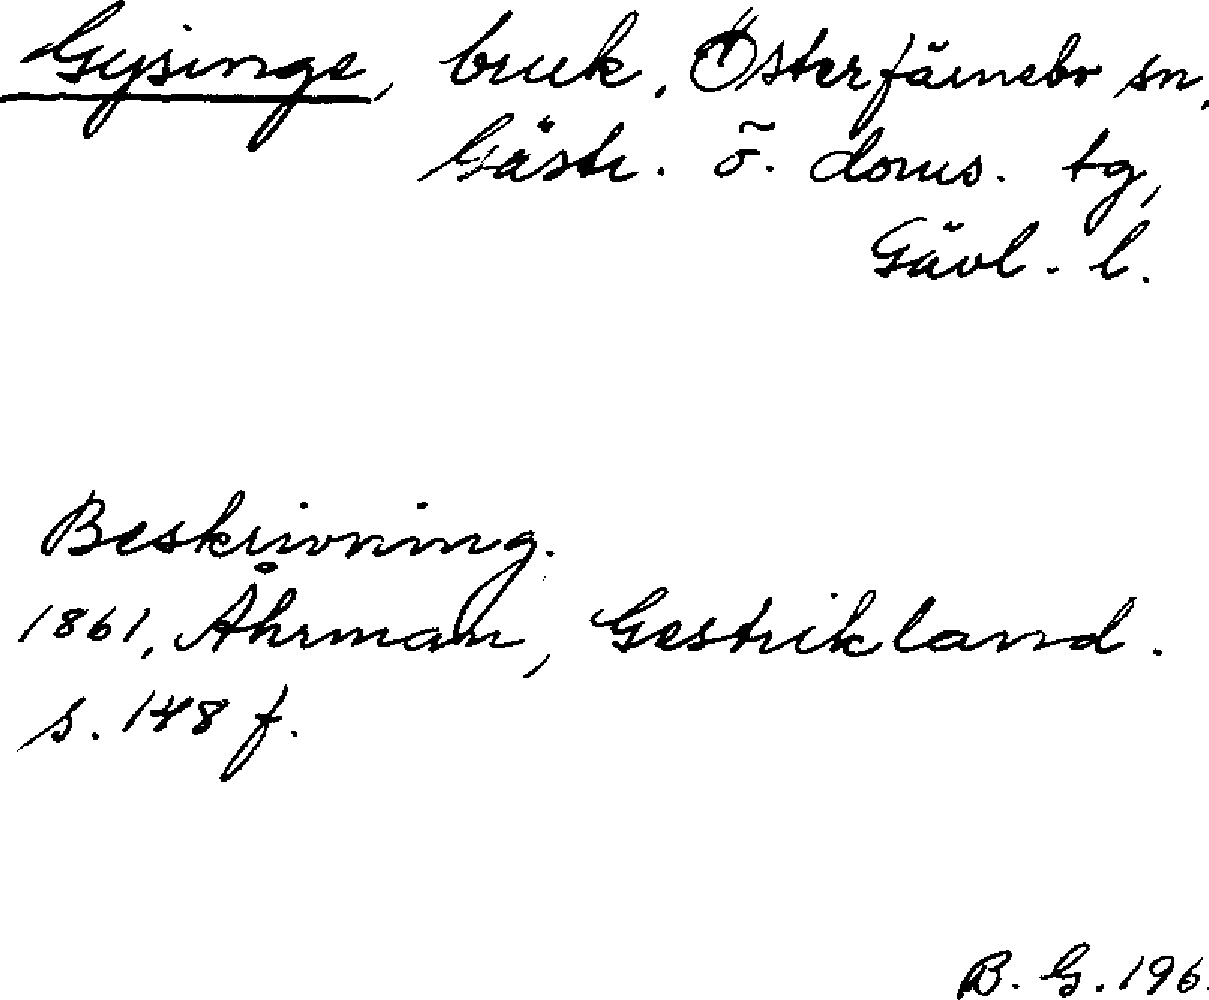 Gysinge, bruk, Österfärnebo sn,
Gästr. ö. doms. tg,
Gävl. l.
Beskrivning.
1861, Åhrman, Gestrikland.
s. 148 f.
B. G. 196.